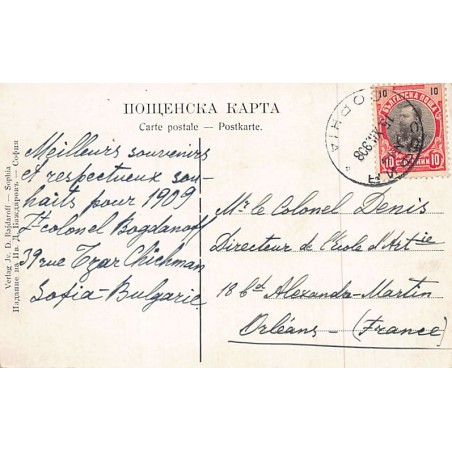 ПОЩЕНСКА КАРТА
Carte postale — Postkarte.
Meilleurs souvenirs
et respectueux sou-
haits pour 1909
Lt colonel Bogdanoff
39 rue Tzar Chichman
Sofia-Bulgarie
Mr le Colonel Denis
Directeur de l'Ecole d'Artie
18 Bd Alexandre-Martin
Orléans — (France)
Verlag Jv. D. Bajdaroff — Sophia
Издание на Ив. Д. Баждаровъ — София
10 10
БЪЛГАРСКА ПОЩА
10 10
СОФИЯ